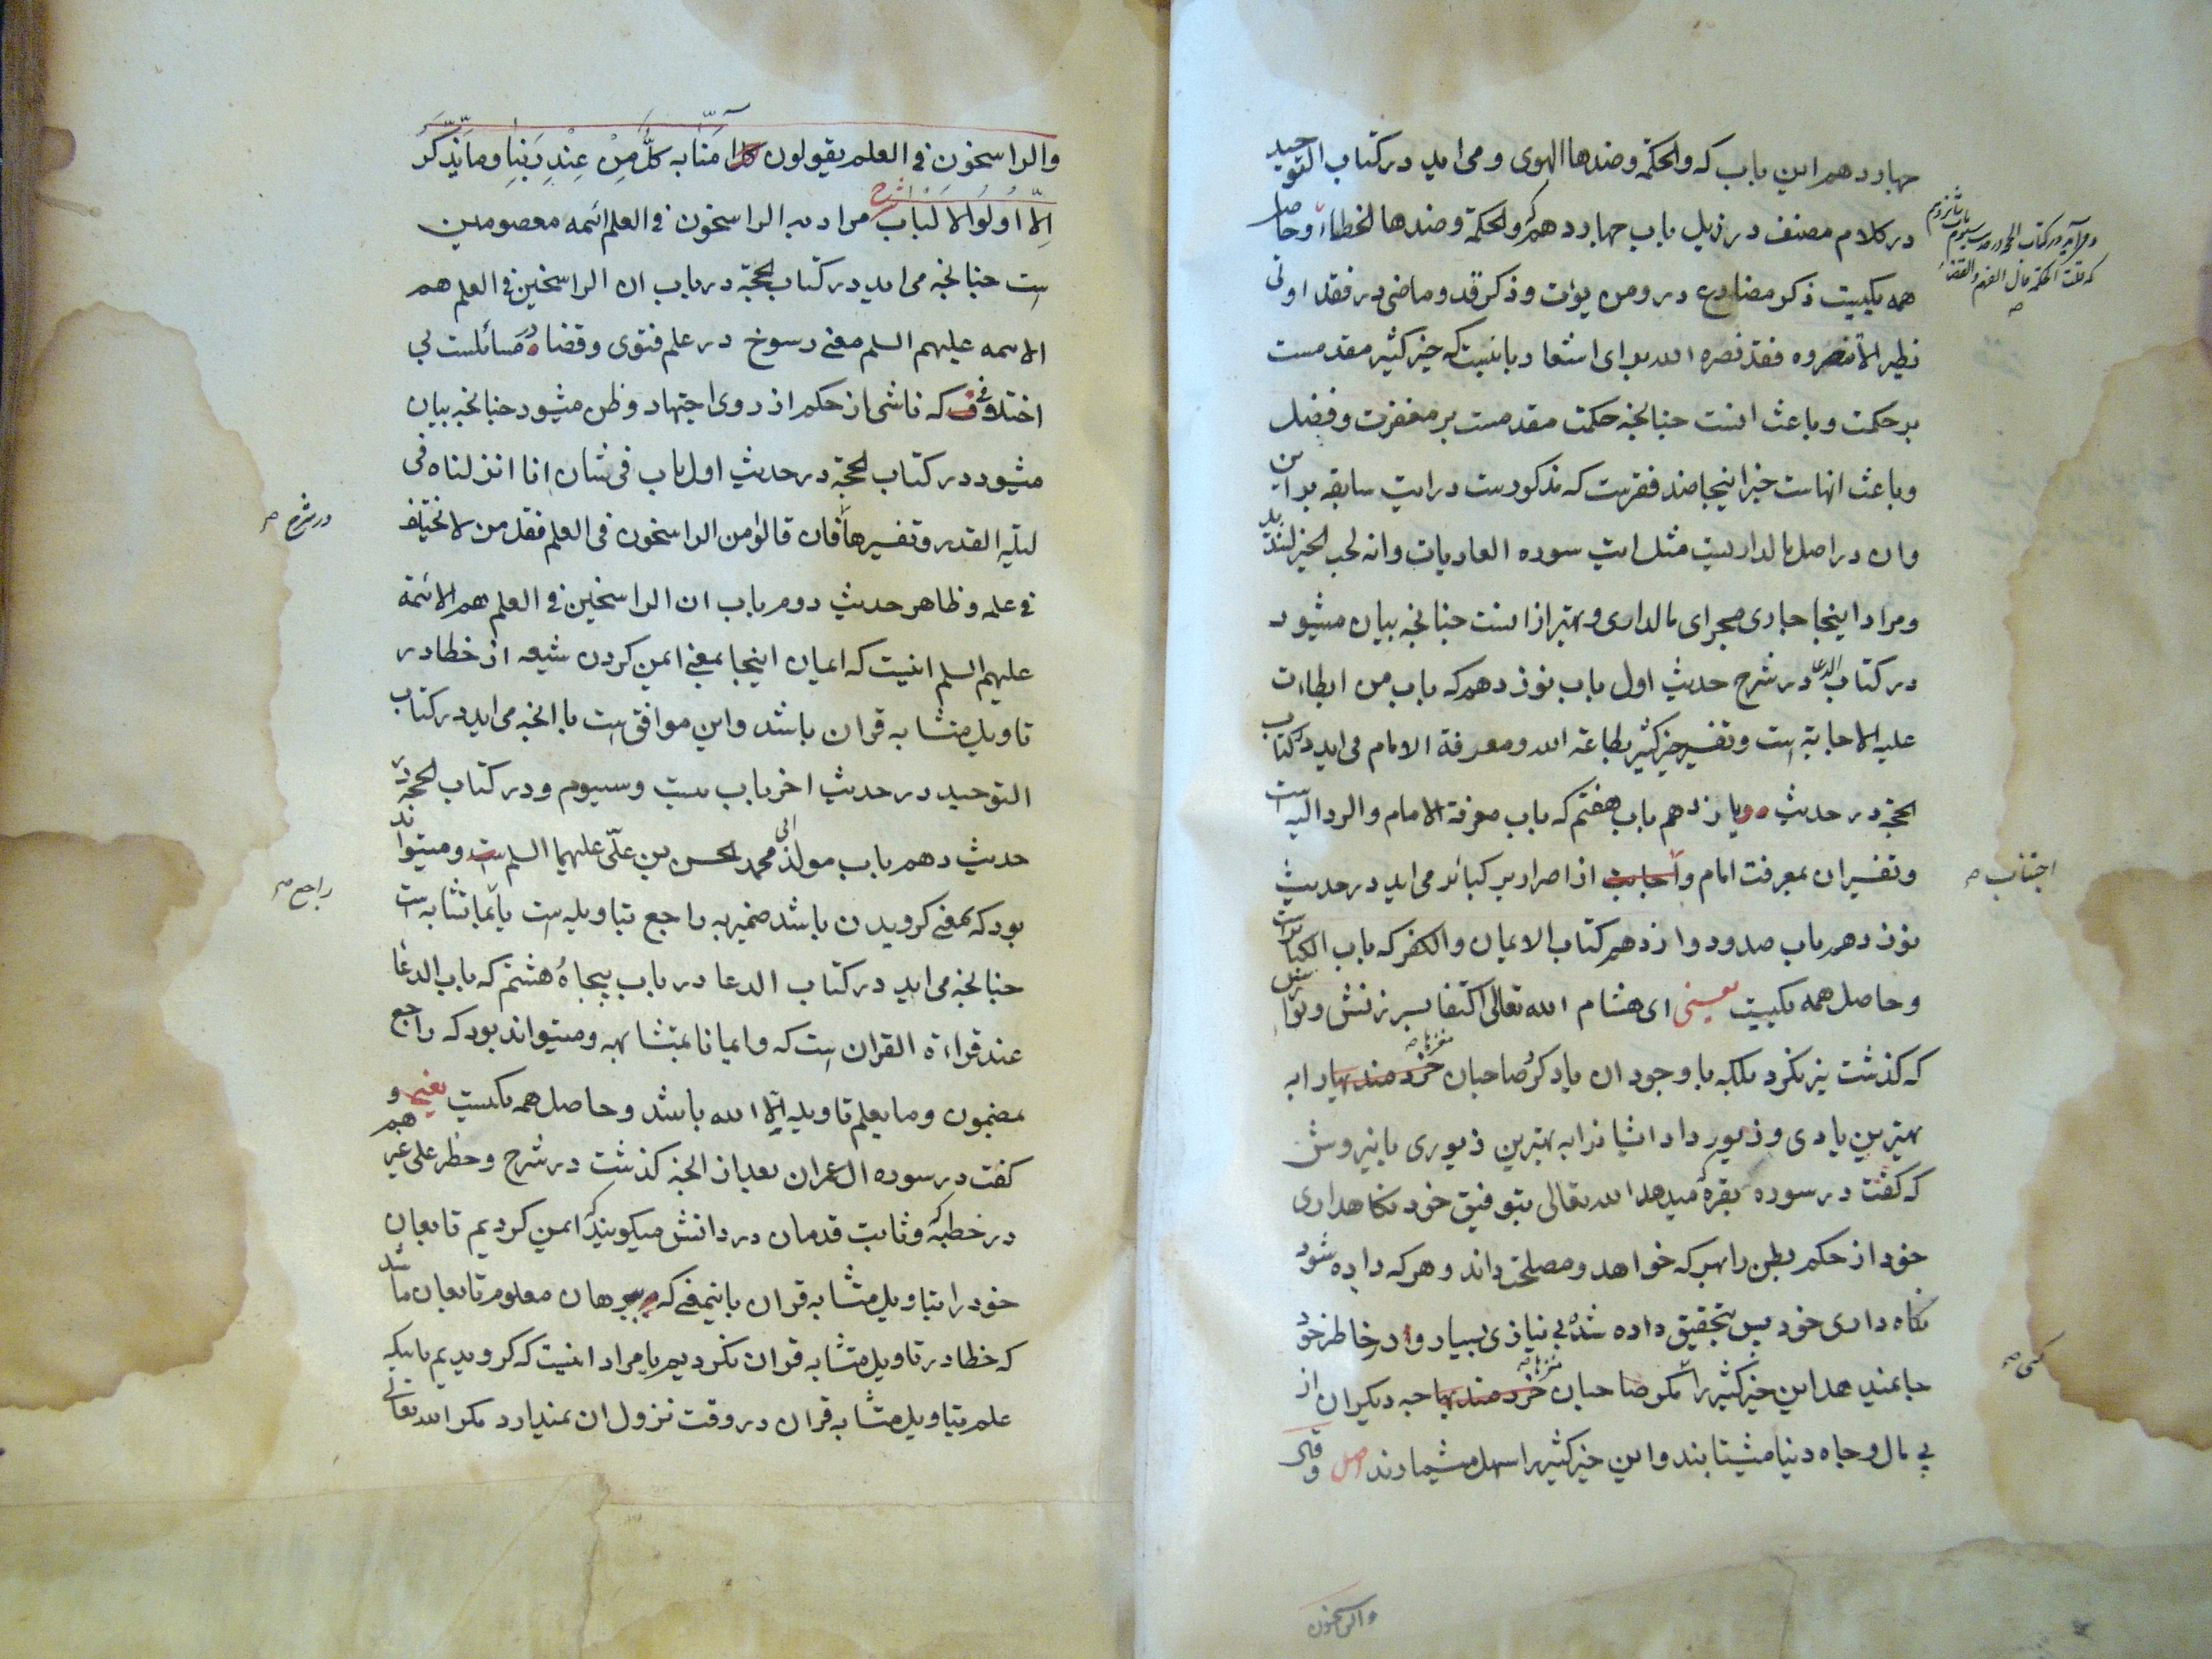 چهاردهم این باب که والحکمة وضدها الهوی و می اید در کتاب التوحید
در کلام مصنف در ذیل باب چهاردهم که والحکمة وضدها الخطاء و حاصل
همه یکیست ذکر مضارع در ومن یوت و ذکر قد و ماضی در فقد اوتی
نظیر الا تنصروه فقد نصره الله برای اشعار باینست که خیر کثیر مقدمست
بر حکمت و باعث انست چنانچه حکمت مقدمست بر مغفرت و فضل
و باعث انهاست خیر اینجا ضد فقرست که مذکورست در ایت سابقه بر این
وان در اصل مالداریست مثل ایت سوره العادیات وانه لحب الخیر لشدید
ومراد اینجا جاری مجرای مالداری و بهتر از انست چنانچه بیان میشود
در کتاب الدعا در شرح حدیث اول باب نوزدهم که باب من ابطاءت
علیه الاجابة است وتفسیر خیر کثیر بطاعة الله ومعرفة الامام می اید در کتاب
الحجة در حدیث یازدهم باب هفتم که باب معرفة الامام والرد الیه است
وتفسیر ان بمعرفت امام و اجابت از اصرار بر کبائر می اید در حدیث
نوزدهم باب صد و دوازدهم کتاب الایمان والکفر که باب الکبائرست
و حاصل همه یکیست یعنی ای هشام الله تعالی اکتفا بسرزنش و توابش
که گذشت نیز نکرد بلکه با وجود ان یاد کرد صاحبان خردمندیها را به
بهترین یادی و زیور داد ایشانرا به بهترین زیوری باین روش
که گفت در سوره بقره میدهد الله تعالی بتوفیق خود نگاهداری
خود از حکم بظن را بهر که خواهد و مصلحت داند و هر که داده شود
نگاه داری خود پس بتحقیق داده شده بی نیازی بسیار و در خاطر خود
جا نمیدهد این خیر کثیر را مگر صاحبان خردمندیها چه دیگران از
پی مال و جاه دنیا میشتابند و این خیر کثیر را سهل میشمارند اصل وقال
والراسخون
و می آید در کتاب الحجة در حدیث سیوم باب شانزدهم
که قلت الحکمة قال الفهم والقضاء
اجتناب صح
مغزها صح
مغزها صح
کسی صح
والراسخون فی العلم یقولون آمَنّا به کلٌّ مِنْ عِنْدِ رَبِّنا وما یَذَّکَّرُ
اِلّا اُولُوا الالْبابِ شرح مراد به الراسخون فی العلم ائمه معصومین
است چنانچه می اید در کتاب الحجة در باب ان الراسخین فی العلم هم
الائمه علیهم السلم معنی رسوخ در علم فتوی و قضا در مسائلست بی
اختلافی که ناشی از حکم از روی اجتهاد و ظن میشود چنانچه بیان
میشود در کتاب الحجة در حدیث اول باب فی شان انا انزلناه فی
لیلة القدر وتفسیرها فان قالوا من الراسخون فی العلم فقل من لا یختلف
فی علمه و ظاهر حدیث دوم باب ان الراسخین فی العلم هم الائمة
علیهم السلم اینست که ایمان اینجا بمعنی ایمن کردن شیعه از خطا در
تاویل متشابه قران باشد واین موافق است با انچه می اید در کتاب
التوحید در حدیث اخر باب بیست وسیوم و در کتاب الحجة در
حدیث دهم باب مولد ابی محمد الحسن بن علی علیهما السلم و میتواند
بود که بمعنی گرویدن باشد ضمیر به راجع بتاویله است یا بما تشابه است
چنانچه می اید در کتاب الدعا در باب پنجاه هشتم که باب الدعا
عند قراءة القران است که وایمانا بمتشابهه ومیتواند بود که راجع
بمضمون وما یعلم تاویله الا الله باشد و حاصل همه یکیست یعنی و
گفت در سوره ال عمران بعد از انچه گذشت در شرح وحظر علی غیرهم
در خطبه که وثابت قدمان در دانش میگویند که ایمن کردیم تابعان
خود را بتاویل متشابه قران باینمعنی که برهان معلوم تابعان ما شد
که خطا در تاویل متشابه قران نکردیم یا مراد اینست که گرویدیم باینکه
علم بتاویل متشابه قران در وقت نزول ان نمیدارد مگر الله تعالی
در شرح صح
راجع صح